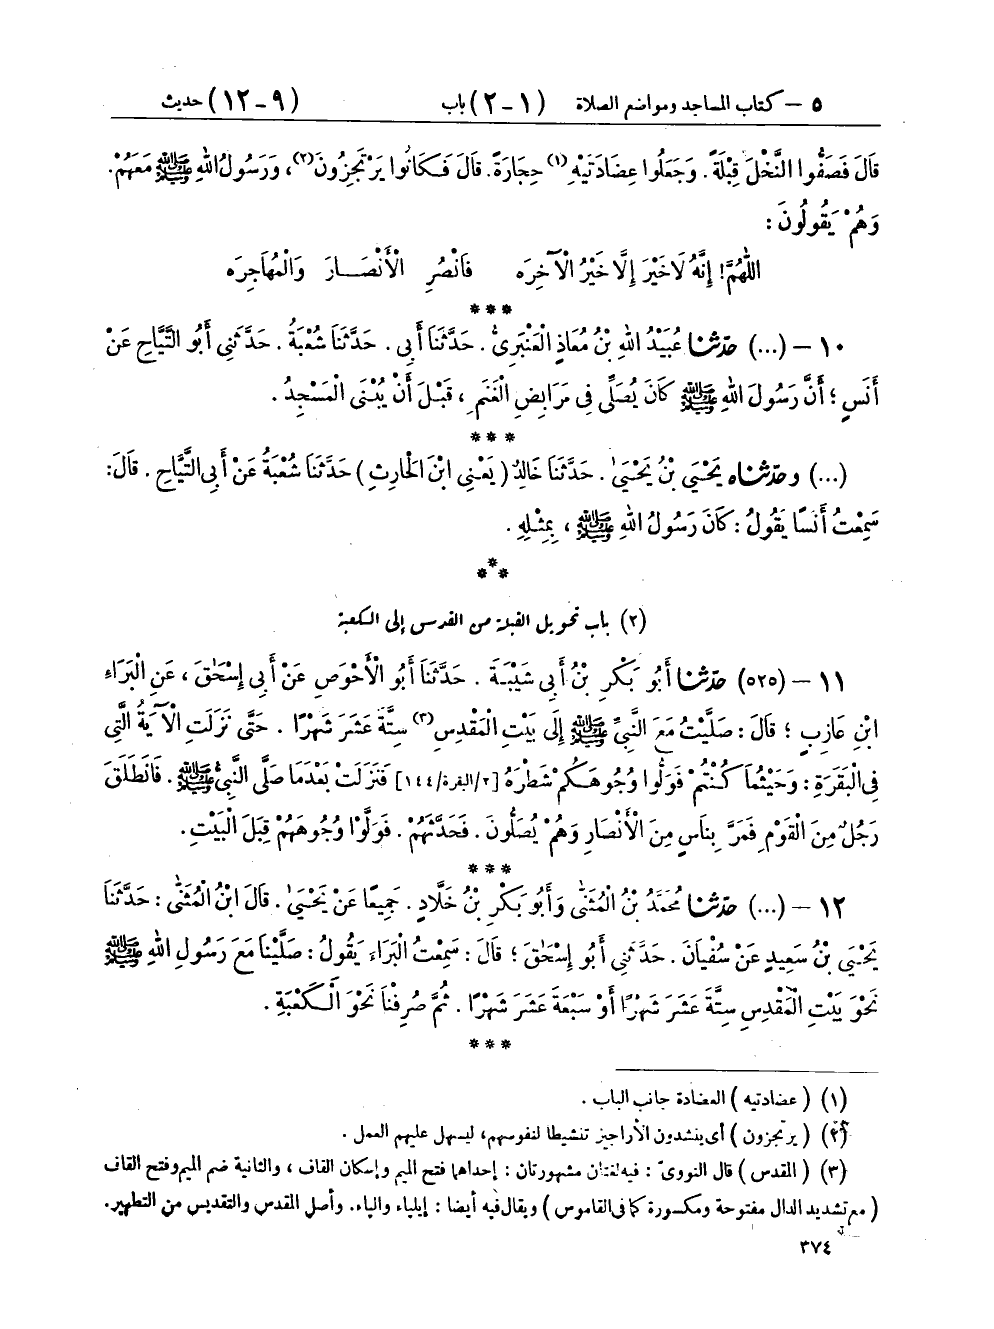 ٥ – كتاب المساجد ومواضع الصلاة (١ – ٢) باب (٩ – ١٢) حديث
قَالَ فَصَفُّوا النَّخْلَ قِبْلَةً. وَجَعَلُوا عِضَادَتَيْهِ(١) حِجَارَةً. قَالَ فَكَانُوا يَرْتَجِزُونَ(٢)، وَرَسُولُ اللهِ ﷺ مَعَهُمْ.
وَهُمْ يَقُولُونَ:
اللّٰهُمَّ! إِنَّهُ لَا خَيْرَ إِلَّا خَيْرُ الْآخِرَه فَانْصُرِ الْأَنْصَارَ وَالْمُهَاجِرَه
***
١٠ – (...) حدّثنا عُبَيْدُ اللهِ بْنُ مُعَاذٍ الْعَنْبَرِيُّ. حَدَّثَنَا أَبِي. حَدَّثَنَا شُعْبَةُ. حَدَّثَنِي أَبُو التَّيَّاحِ عَنْ
أَنَسٍ؛ أَنَّ رَسُولَ اللهِ ﷺ كَانَ يُصَلِّي فِي مَرَابِضِ الْغَنَمِ، قَبْلَ أَنْ يُبْنَى الْمَسْجِدُ.
***
(...) وحدّثناه يَحْيَى بْنُ يَحْيَىٰ. حَدَّثَنَا خَالِدٌ (يَعْنِي ابْنَ الْحَارِثِ) حَدَّثَنَا شُعْبَةُ عَنْ أَبِي التَّيَّاحِ. قَالَ:
سَمِعْتُ أَنَسًا يَقُولُ: كَانَ رَسُولُ اللهِ ﷺ، بِمِثْلِهِ.
***
(٢) باب تحويل القبلة من القدس إلى الكعبة
١١ – (٥٢٥) حدّثنا أَبُو بَكْرِ بْنُ أَبِي شَيْبَةَ. حَدَّثَنَا أَبُو الْأَحْوَصِ عَنْ أَبِي إِسْحَٰقَ، عَنِ الْبَرَاءِ
ابْنِ عَازِبٍ؛ قَالَ: صَلَّيْتُ مَعَ النَّبِيِّ ﷺ إِلَى بَيْتِ الْمَقْدِسِ(٣) سِتَّةَ عَشَرَ شَهْرًا. حَتَّى نَزَلَتِ الْآيَةُ الَّتِي
فِي الْبَقَرَةِ: وَحَيْثُمَا كُنْتُمْ فَوَلُّوا وُجُوهَكُمْ شَطْرَهُ [٢/البقرة/١٤٤] فَنَزَلَتْ بَعْدَمَا صَلَّى النَّبِيُّ ﷺ. فَانْطَلَقَ
رَجُلٌ مِنَ الْقَوْمِ فَمَرَّ بِنَاسٍ مِنَ الْأَنْصَارِ وَهُمْ يُصَلُّونَ. فَحَدَّثَهُمْ. فَوَلَّوْا وُجُوهَهُمْ قِبَلَ الْبَيْتِ.
***
١٢ – (...) حدّثنا مُحَمَّدُ بْنُ الْمُثَنَّى وَأَبُو بَكْرِ بْنُ خَلَّادٍ. جَمِيعًا عَنْ يَحْيَىٰ. قَالَ ابْنُ الْمُثَنَّى: حَدَّثَنَا
يَحْيَى بْنُ سَعِيدٍ عَنْ سُفْيَانَ. حَدَّثَنِي أَبُو إِسْحَٰقَ؛ قَالَ: سَمِعْتُ الْبَرَاءَ يَقُولُ: صَلَّيْنَا مَعَ رَسُولِ اللهِ ﷺ
نَحْوَ بَيْتِ الْمَقْدِسِ سِتَّةَ عَشَرَ شَهْرًا أَوْ سَبْعَةَ عَشَرَ شَهْرًا. ثُمَّ صُرِفْنَا نَحْوَ الْكَعْبَةِ.
***
(١) (عضادتيه) العضادة جانب الباب.
(٢) (يرتجزون) أى ينشدون الأراجيز تنشيطا لنفوسهم، ليسهل عليهم العمل.
(٣) (المقدس) قال النووىّ: فيه لغتان مشهورتان: إحداهما فتح الميم وإسكان القاف، والثانية ضم الميم وفتح القاف
(مع تشديد الدال مفتوحة ومكسورة كما فى القاموس) ويقال فيه أيضا: إيلياء والياء. وأصل المقدس والتقديس من التطهير.
٣٧٤